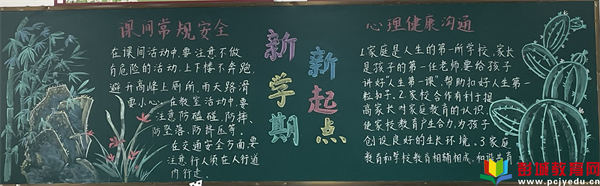 课间常规安全
在课间活动中,要注意不做
有危险的活动,上下楼不奔跑,
避开高峰上厕所,雨天路滑
要小心。在教室活动中,要
注意防磕碰、防摔、
防坠落、防挤压等。
在交通安全方面要
注意,行人须在人行道
内行走。
新学期
新起点
心理健康沟通
1.家庭是人生的第一所学校,家长
是孩子的第一任老师要给孩子
讲好"人生第一课",帮助扣好人生第一
粒扣子。2.家校合作有利于提
高家长对家庭教育的认识,
使家校教育产生合力,为孩子
创设良好的生长环境。3.家庭
教育和学校教育相辅相成,和谐共育
彭城教育网
www.pcjyedu.cn